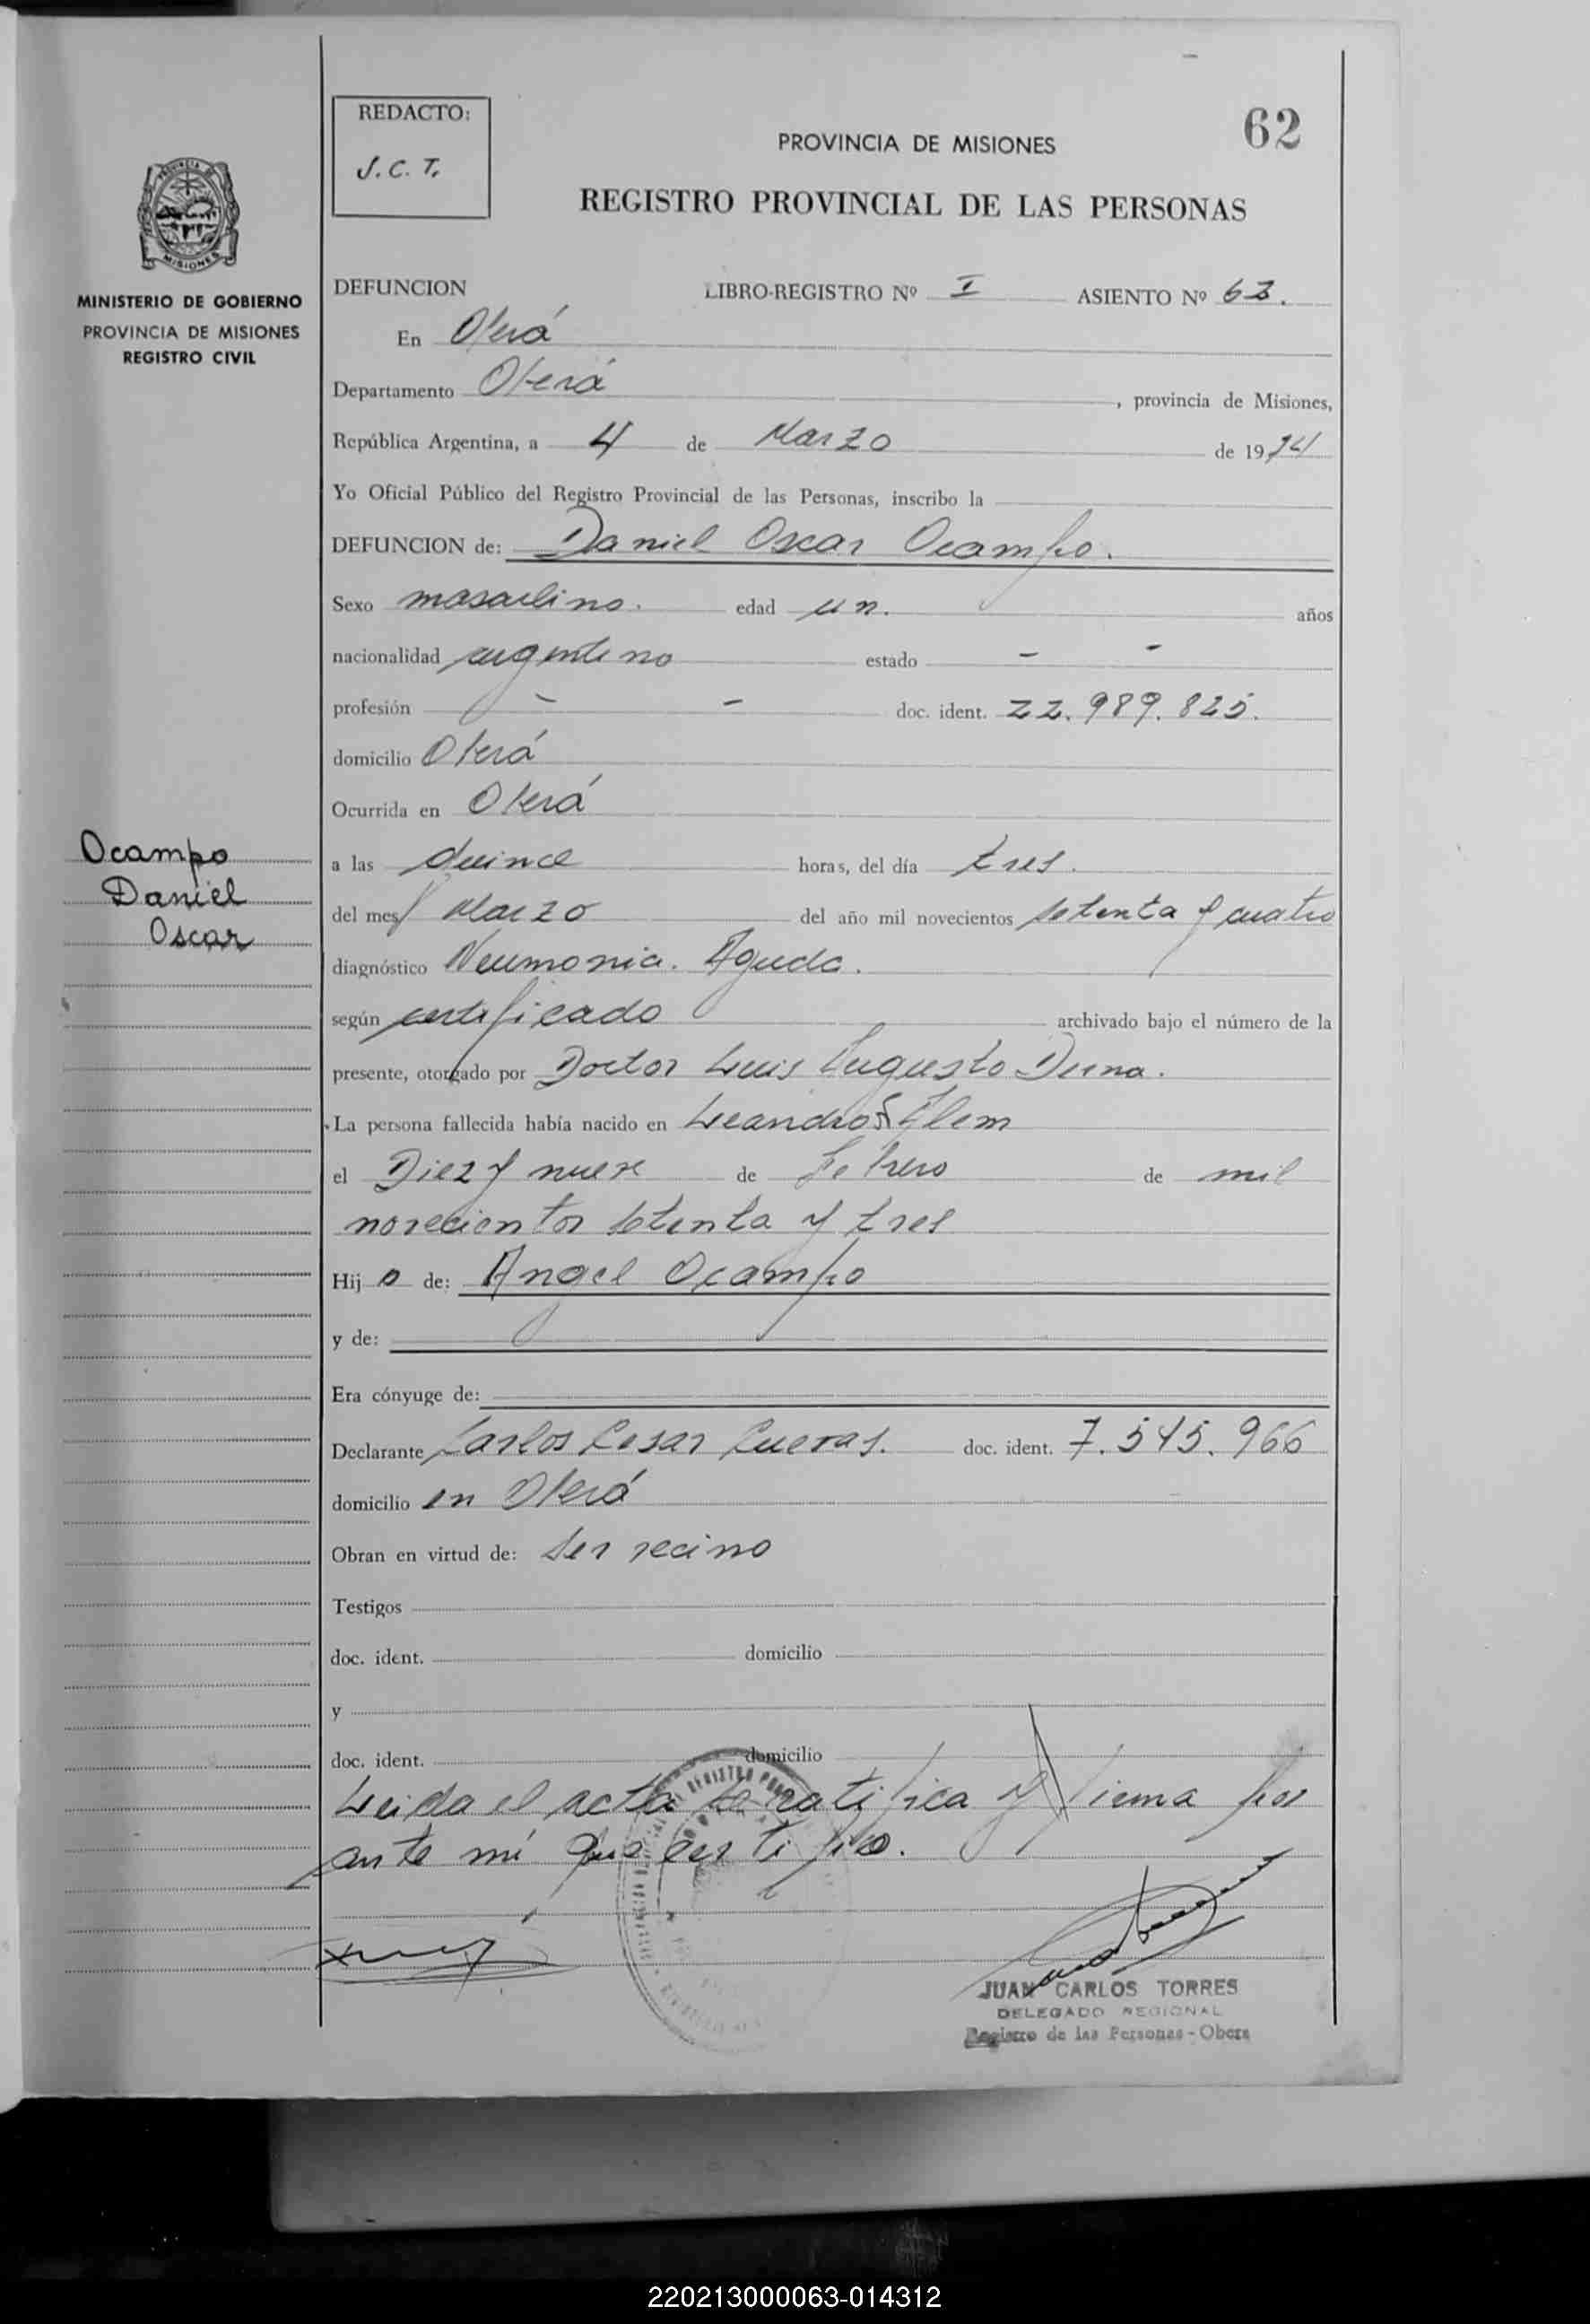 REDACTO:
J. C. T.
62
PROVINCIA DE MISIONES
REGISTRO PROVINCIAL DE LAS PERSONAS
MISIONES
MINISTERIO DE GOBIERNO
PROVINCIA DE MISIONES
REGISTRO CIVIL
DEFUNCION LIBRO-REGISTRO Nº I ASIENTO Nº 63.
En Oberá
Departamento Oberá, provincia de Misiones,
República Argentina, a 4 de Marzo de 1974
Yo Oficial Público del Registro Provincial de las Personas, inscribo la
DEFUNCION de: Daniel Oscar Ocampo.
Sexo masculino. edad un. años
nacionalidad argentino estado - -
profesión - - doc. ident. 22.989.825.
domicilio Oberá
Ocurrida en Oberá
Ocampo
Daniel
Oscar
a las Quince horas, del día tres.
del mes Marzo del año mil novecientos setenta y cuatro
diagnóstico Neumonia. Aguda.
según certificado archivado bajo el número de la
presente, otorgado por Doctor Luis Augusto Derna.
La persona fallecida había nacido en Leandro N Alem
el Diez y nueve de Febrero de mil
novecientos setenta y tres
Hijo de: Angel Ocampo
y de:
Era cónyuge de:
Declarante Carlos Cesar Cuevas. doc. ident. 7.545.966
domicilio en Oberá
Obran en virtud de: ser vecino
Testigos
doc. ident. domicilio
y
doc. ident. domicilio
Leida el acta se ratifica y firma por
ante mi que certifico.
JUAN CARLOS TORRES
DELEGADO REGIONAL
Registro de las Personas - Obera
220213000063-014312